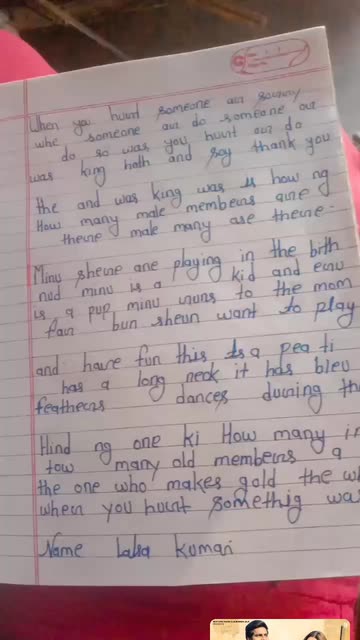 When you huunt someone aur souriy
whe someone aur do someone our
do so was you huunt aur do
was king hath and say thank you
the and was king was is how ng
How many male members aure
theure male many are theure.
Minu sheure are playing in the birth
nud minu is a kid and enu
is a pup minu uruns to the mom
faur bun sheun want to play
and haure fun this is a pea ti
has a long neck it has bleu
feathers dances duuing the
Hind ng one ki How many in
tow many old members a
the one who makes gold the wh
when you huunt somethig wa
Name Lalsa Kumari